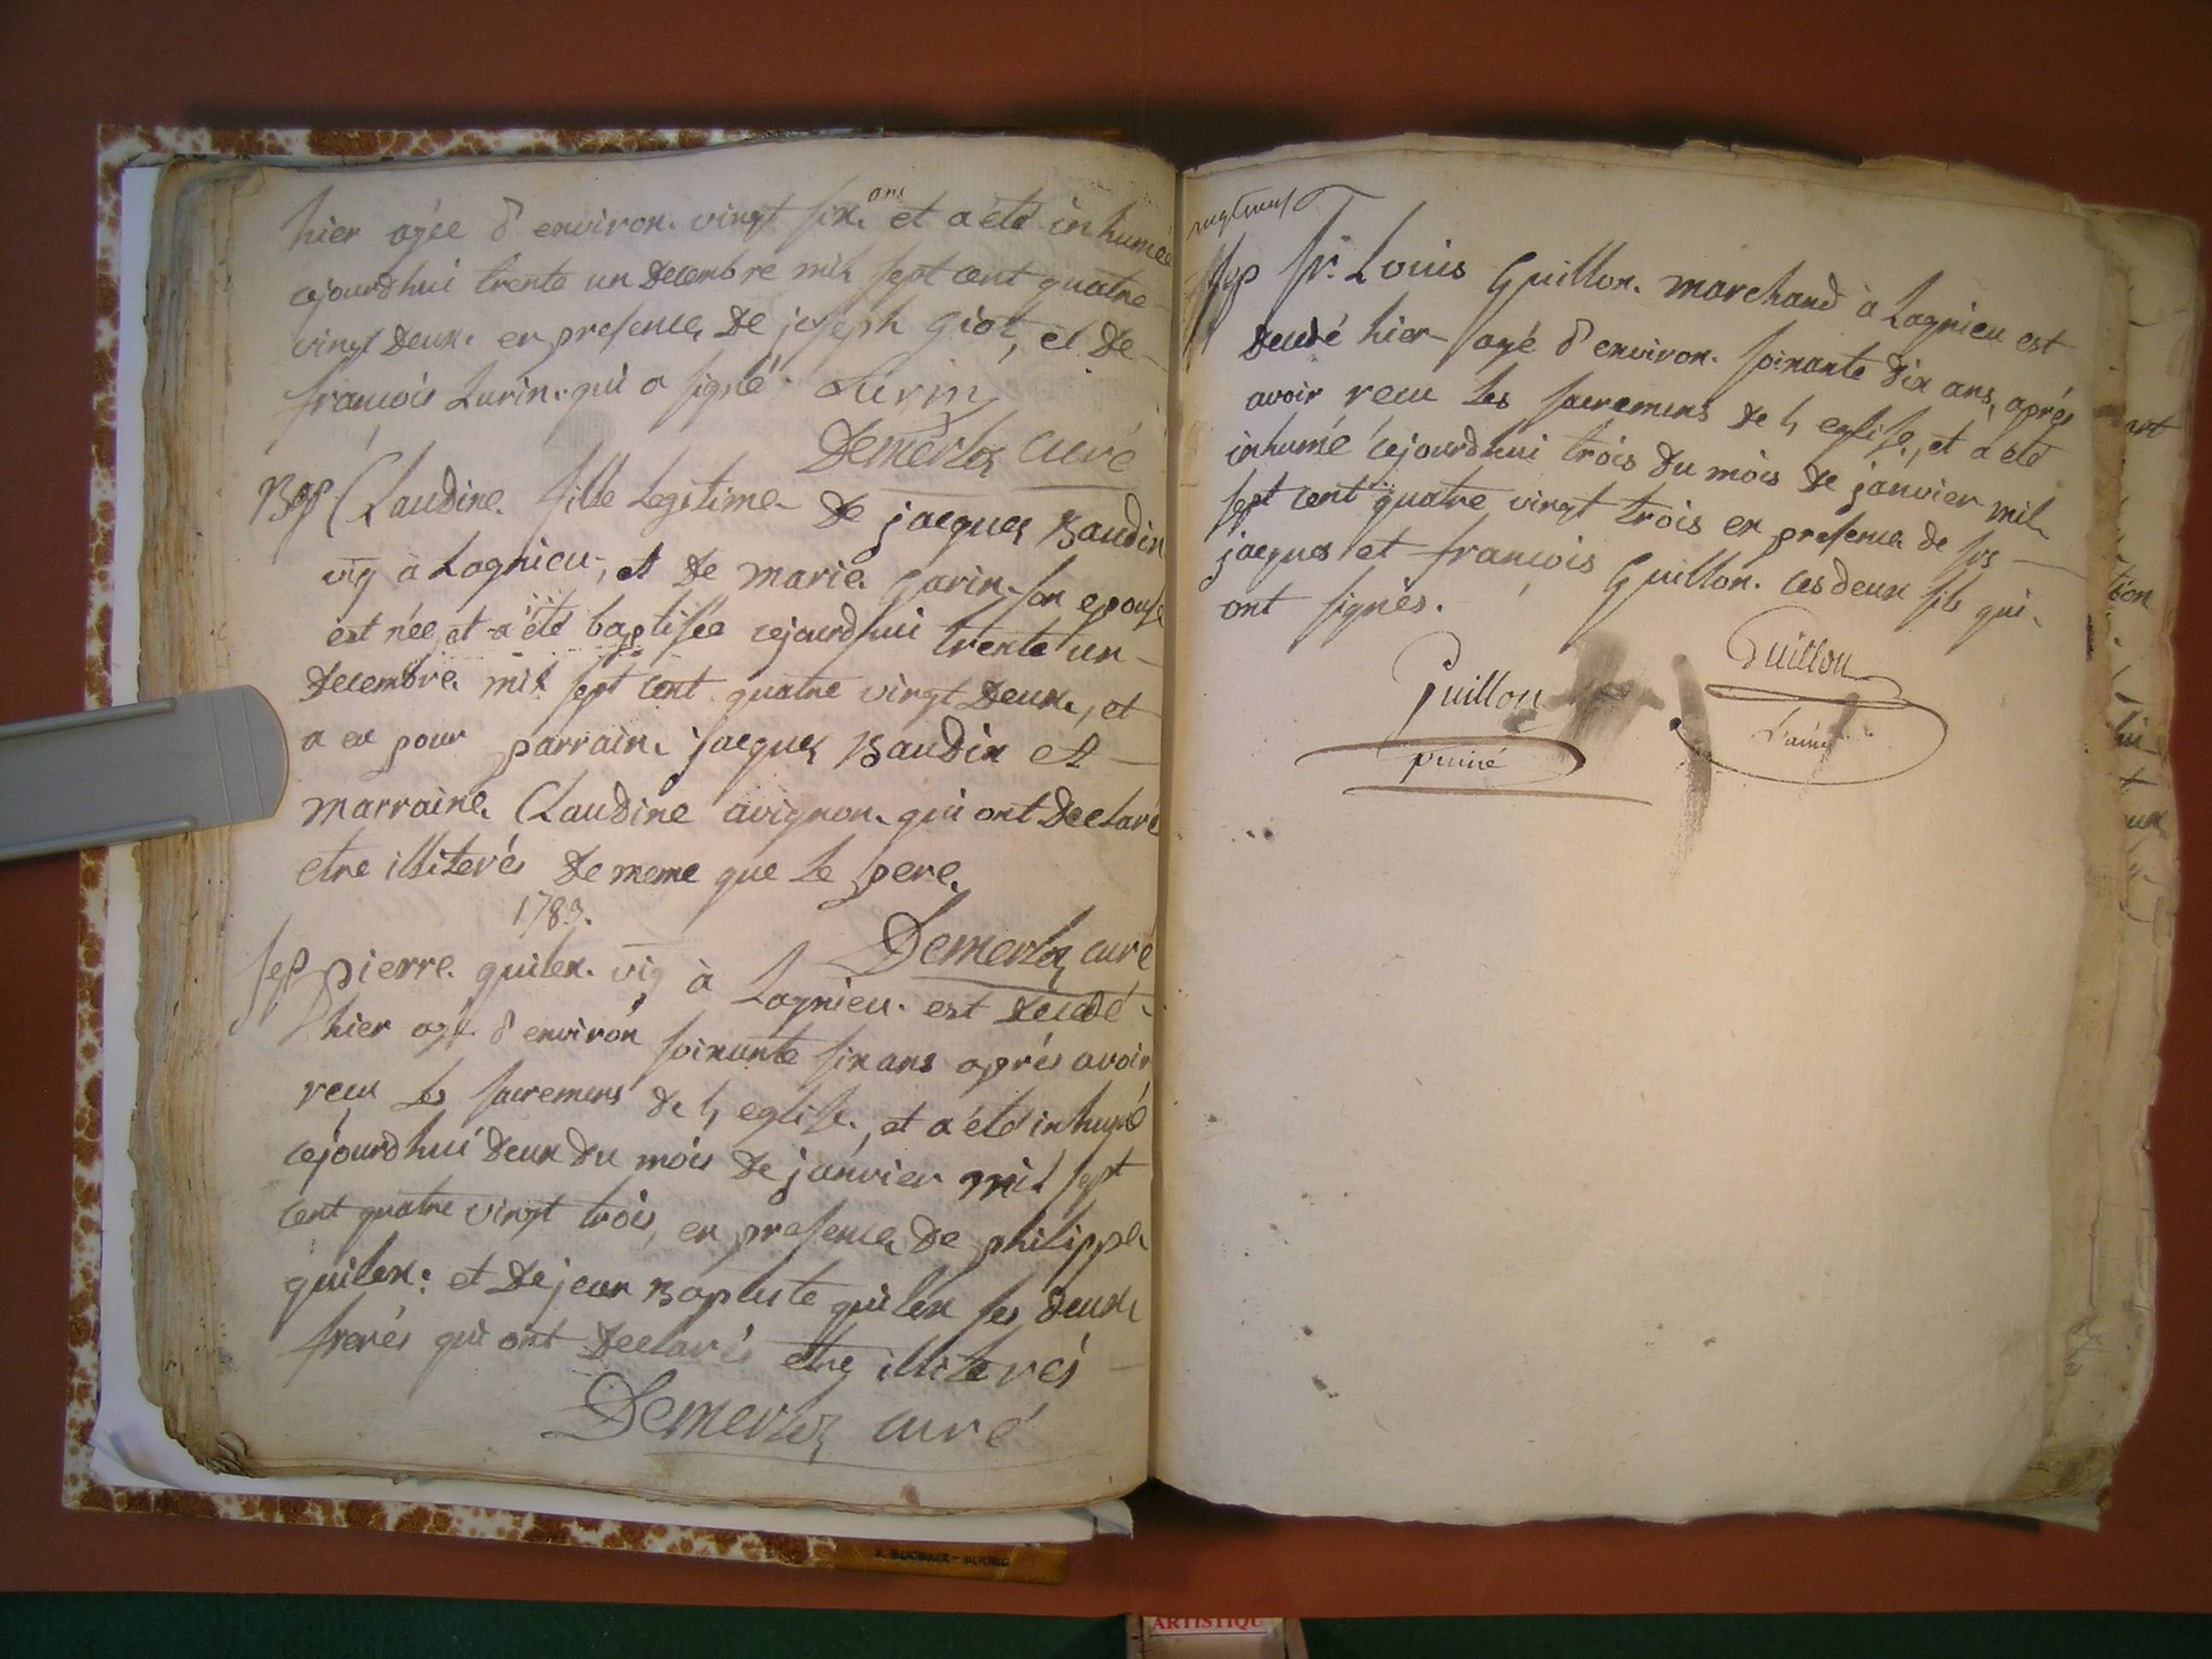 hier agée d'environ vingt six ans et a été inhumée
cejourdhui trente un decembre mil sept cent quatre
vingt deux en presence de joseph giot, et de
francois Lurin qui a signé Lurin
Demerloz curé
Bap Claudine fille Legitime de jacques Baudin
vig à Lagnieu, et de marie garin son epouse
est née et a été baptisée cejourdhui trente un
decembre mil sept cent quatre vingt deux, et
a eu pour parrain jacques Baudin et
marraine Claudine avignon qui ont declaré
etre illiterés de meme que le pere
1783.
Demerloz curé
sep pierre guilen vig à Lagnieu est decedé
hier agé d'environ soixante six ans aprés avoir
recu les sacremens de l'eglise, et a été inhumé
cejourdhui deux du mois de janvier mil sept
cent quatre vingt trois, en presence de philippe
guilen et de jean Baptiste guilen ses deux
freres qui ont declarés etre illiterés
Demerloz curé
sep sr. Louis Guillon marchand à Lagnieu est
decedé hier agé d'environ soixante dix ans, aprés
avoir recu les sacremens de l'eglise, et a été
inhumé cejourdhui trois du mois de janvier mil
sept cent quatre vingt trois en presence de srs
jacques et francois Guillon ces deux fils qui
ont signés.
Guillon
Guillon
L'ainé
puiné
ARTISTIQU